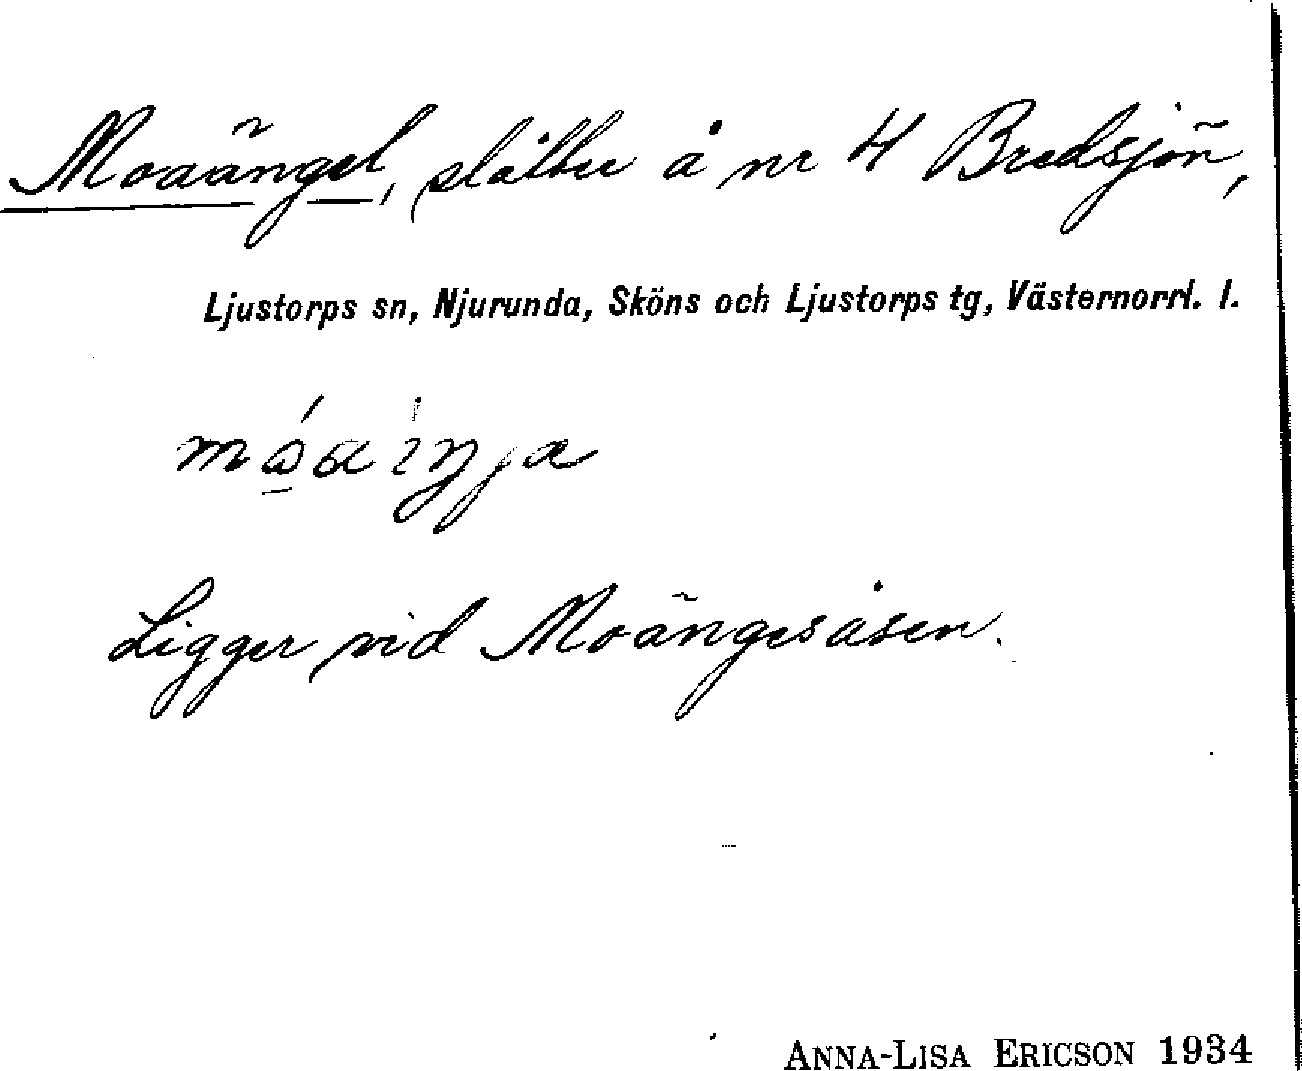 Moaänget, slåtter å nr 4 Bredsjön,
Ljustorps sn, Njurunda, Sköns och Ljustorps tg, Västernorrl. l.
Ligger vid Moängesåsen.
ANNA-LISA ERICSON 1934